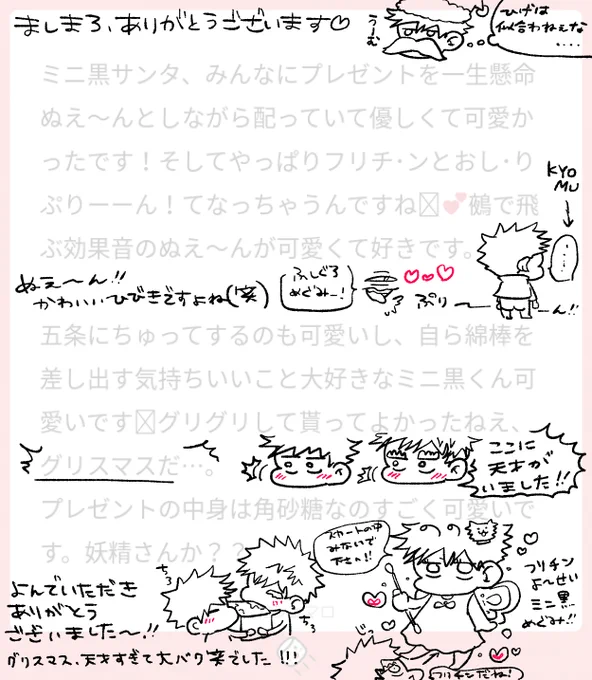 ましまろ、ありがとうございます♡
うーむ
ひげは
似合わねぇな
‥‥
ミニ黒サンタ、みんなにプレゼントを一生懸命
ぬえ〜んとしながら配っていて優しくて可愛か
ったです！そしてやっぱりフリチ･ンとおし･り
ぷりーーん！てなっちゃうんですね💕鵺で飛
ぶ効果音のぬえ〜んが可愛くて好きです。
KYO
MU
ぬえ〜ん!!
かわいいひびきですよね(笑)
ふしぐろ
めぐみー!
ぷり
ーん!!
五条にちゅってするのも可愛いし、自ら綿棒を
差し出す気持ちいいこと大好きなミニ黒くん可
愛いですグリグリして貰ってよかったねえ、
グリスマスだ…。
ここに
天才が
いました!!
プレゼントの中身は角砂糖なのすごく可愛いで
す。妖精さんか？？
スカートの中
みないで
下さい!!
フリチン
よ〜せい
ミニ黒
めぐみ!!
よんでいただき
ありがとう
ございました〜!!
グリスマス、天才すぎて大バク笑でした!!!
フリチンだね!